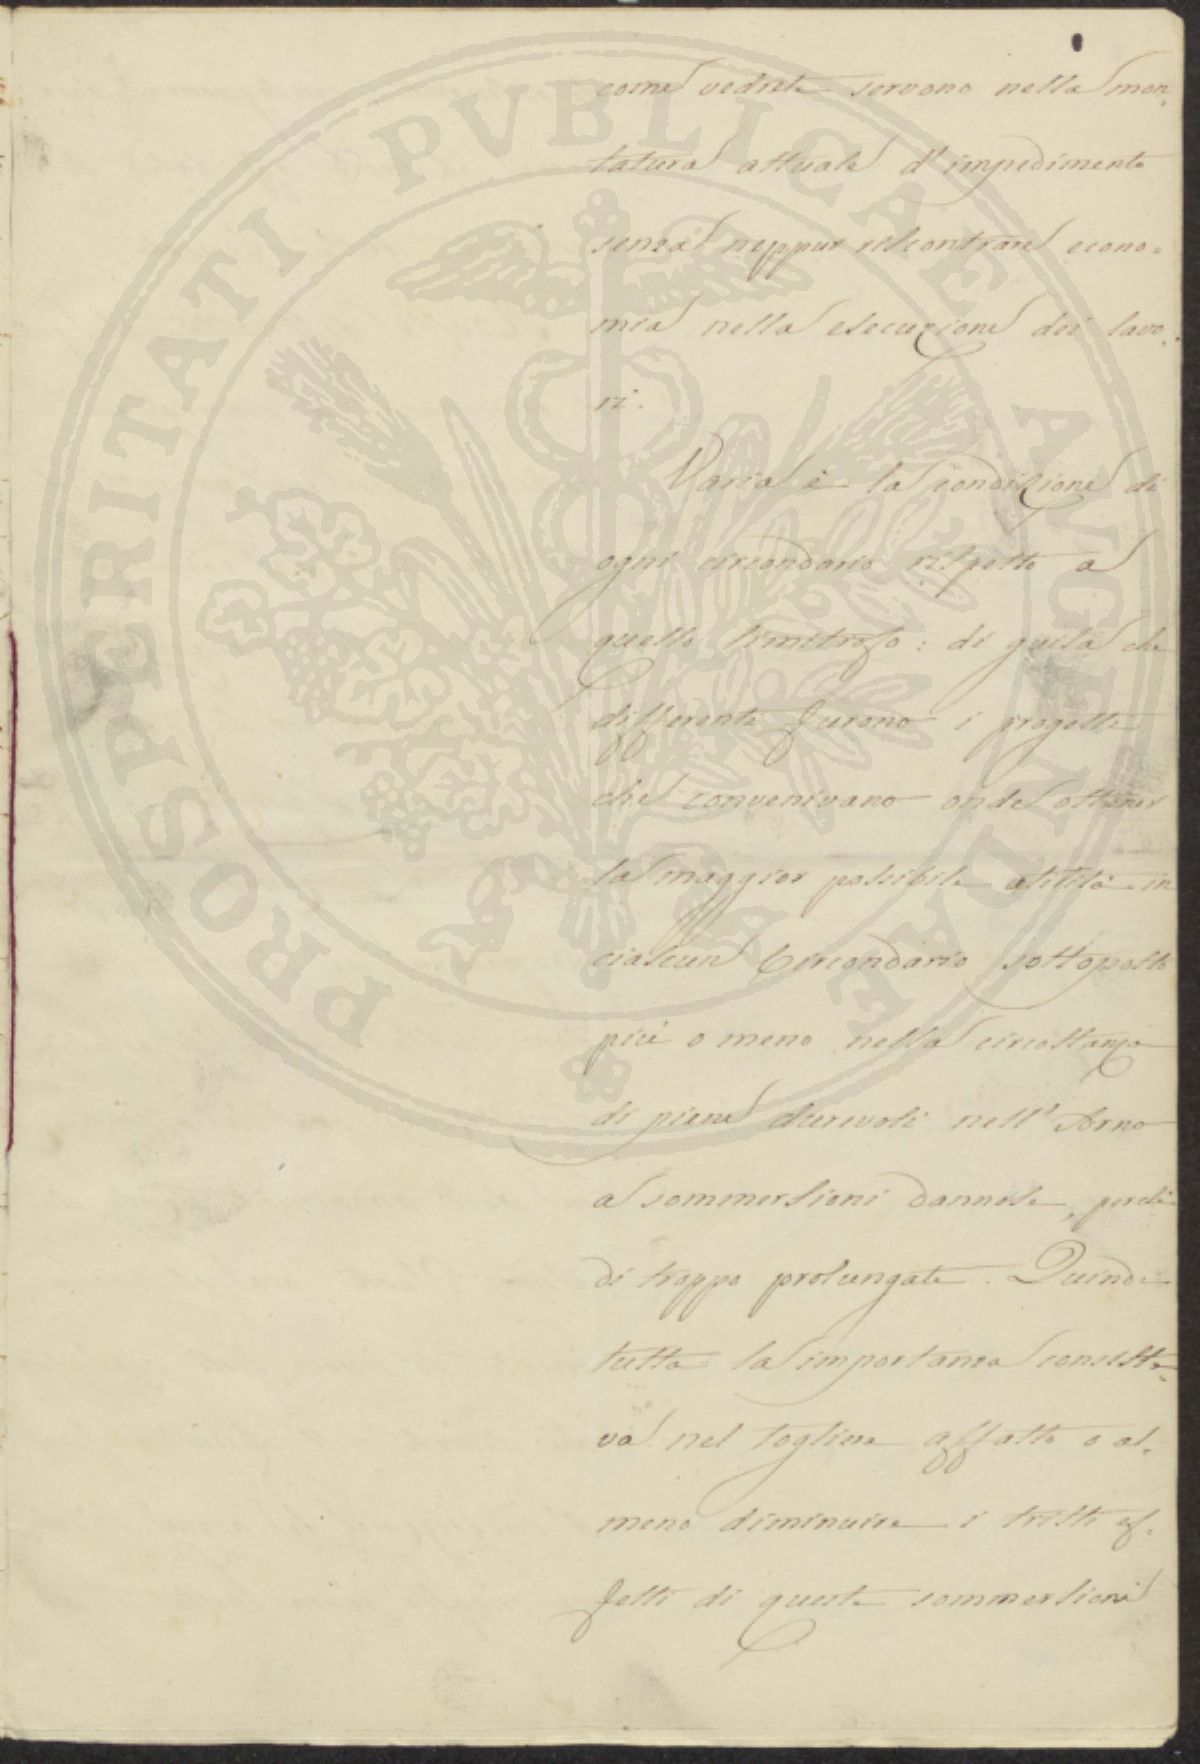 PROSPERITATI PUBLICAE AUGENDAE
come vedrete servono nella mon=
tatura attuale d'impedimento
senza neppur riscontrare econo=
mia nella esecuzione dei lavo=
ri.
Varia è la condizione di
ogni circondario rispetto a
quello limitrofo: di guisa che
differenti furono i progetti
che convenivano onde ottener
la maggior possibile utilità in
ciascun Circondario sottoposto
più o meno nella circostanza
di piene durevoli nell'Arno
a sommersioni dannose, perchè
di troppo prolungate. Quindi
tutta la importanza consiste=
va nel togliere affatto o al=
meno diminuire i tristi ef=
fetti di queste sommersioni